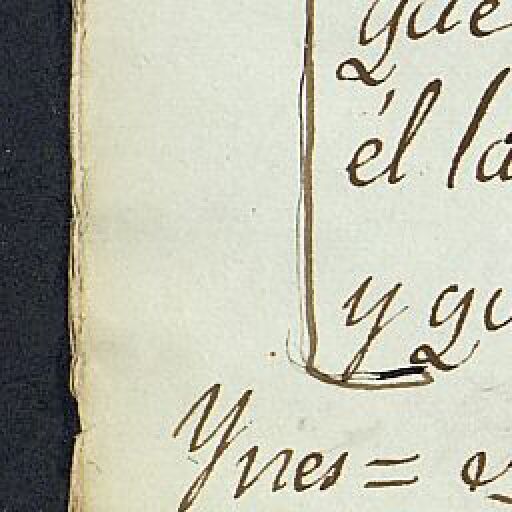 que
él la
y qu
Ynes =